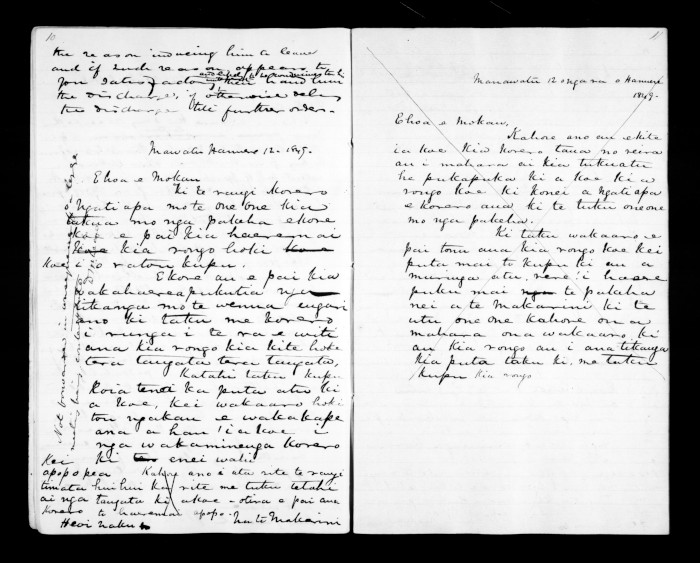 10
the reason inducing him to leave
and if such reason appears to
you satisfactory then hand him
the discharge, if otherwise delay
the discharge till further order.
Manawatu Hanuere 12. 1849.
Ehoa e Mokau
Ki te rangi korero
Ngatiapa mo te one one kia
tukua mo nga pakeha ekore
koe e pai kia haere mai
koe kia rongo hoki koe
koe i o ratou kupu.
Ekore au e pai kia
wakahaerea pukutia nga
tikanga mo te wenua engari
ano ki taku me korero
i runga i te ra e witi
ana kia rongo kia kite hoki
tera tangata tera tangata.
Katahi taku kupu
Koia tenei ka puta atu ki
a koe, kei wakaaro hoki
tou ngakau e wakakape
ana a hau i a koe i
nga wakaminenga korero
ki te enei wahi
Kei
apopo pea Kahore ano i ata rite te rangi
timata huihui ka rite me tuku tetahi
ai nga tangata ki a koe - otira e pai ana
korero te haeremai apopo.
Heoi naku Na te Makarini
Not forwarded in consequence of
11
Manawatu 12 ngara o Hanuere
1849.
Ehoa e Mokau,
Kahore ano au e kite
ia koe kia korero taua no reira
au i mahara ai kia tukuatu
he pukapuka ki a koe kia
rongo koe ki konei a Ngatiapa
e korero ana ki te tuku oneone
mo nga pakeha.
Ki taku wakaaro e
pai tonu ana kia rongo koe kei
puta mai to kupu ki au a
muringa atu, rere i haere
puku mai nga te pakeha
nei a te Makarini ki te
utu one one kahore on a
mahara ona wakaaro ki
au kia rongo au i ana tikanga
kia puta taku ki, me taku
kupu kia rongo